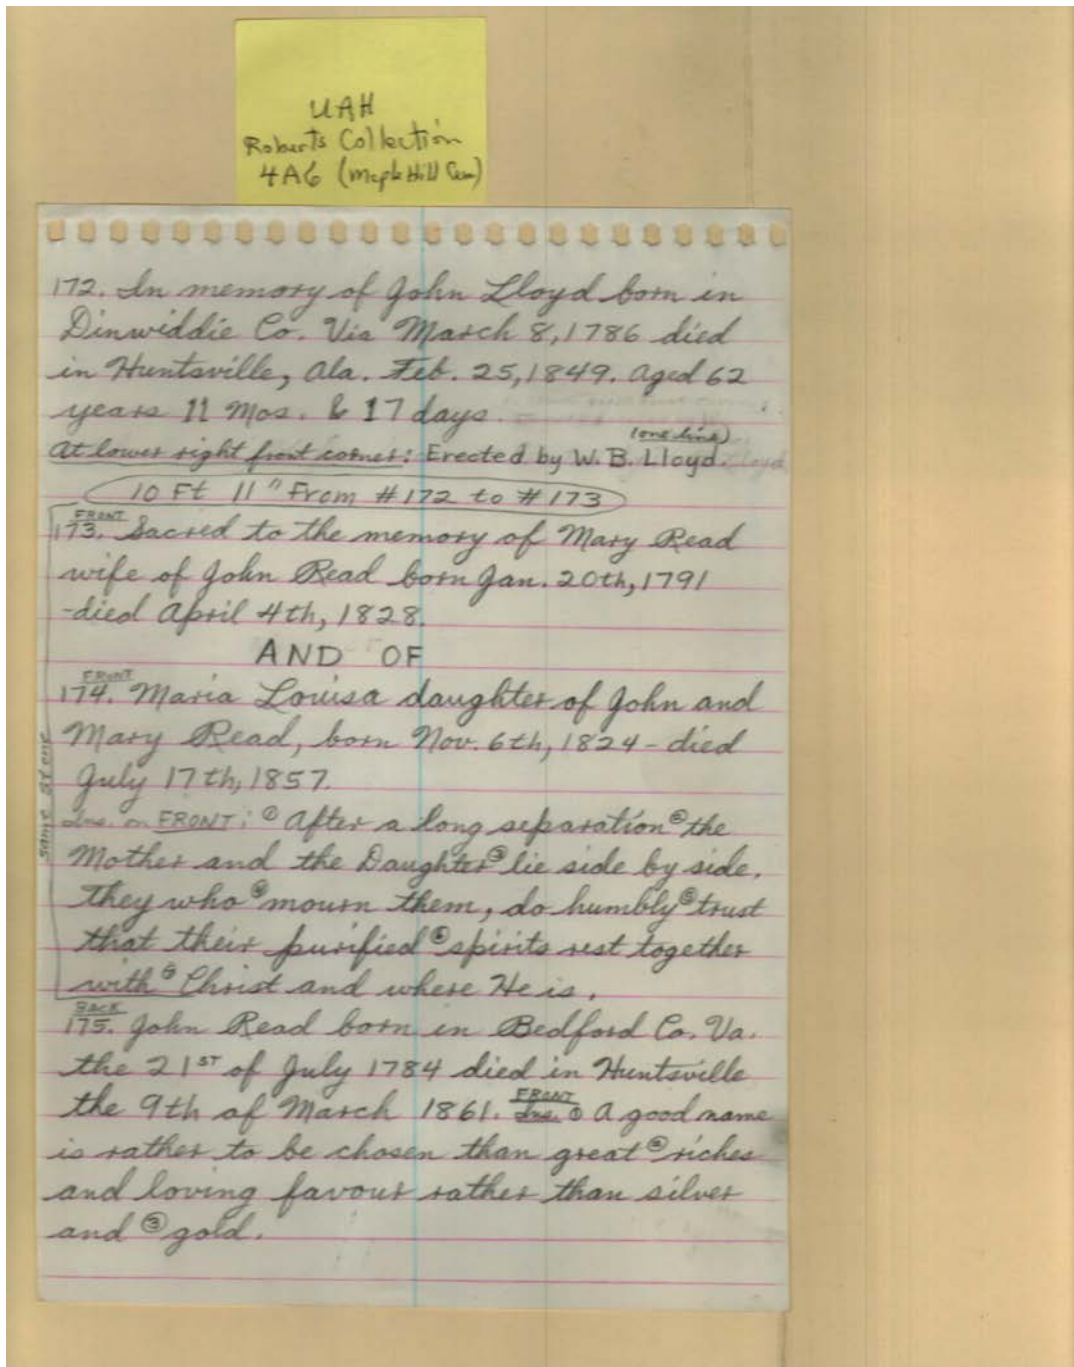 UAH
Roberts Collection
4A6 (Maple Hill Cem)
172. In memory of John Lloyd born in
Dinwiddie Co. Via March 8, 1786 died
in Huntsville, Ala. Feb. 25, 1849. Aged 62
years 11 Mos. & 17 days.
(one line)
At lower right front corner: Erected by W. B. Lloyd.
10 Ft 11" From #172 to #173
FRONT
173. Sacred to the memory of Mary Read
wife of John Read born Jan. 20th, 1791
-died April 4th, 1828.
AND OF
FRONT
174. Maria Louisa daughter of John and
Mary Read, born Nov. 6th, 1824 - died
July 17th, 1857.
same stone
Ins. on FRONT: ① After a long separation ② the
Mother and the Daughter ③ lie side by side.
They who ④ mourn them, do humbly ⑤ trust
that their purified ⑥ spirits rest together
with ⑦ Christ and where He is.
BACK
175. John Read born in Bedford Co. Va.
the 21ST of July 1784 died in Huntsville
FRONT
the 9th of March 1861. Ins. ① A good name
is rather to be chosen than great ② riches
and loving favour rather than silver
and ③ gold.